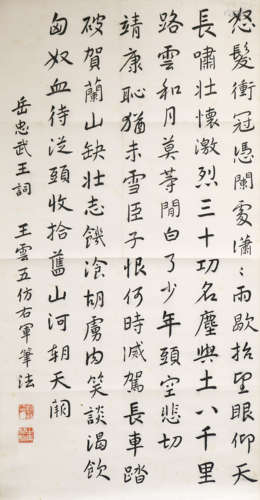 怒髮衝冠憑闌處瀟〻雨歇抬望眼仰天
長嘯壯懷激烈三十功名塵與土八千里
路雲和月莫等閒白了少年頭空悲切
靖康恥猶未雪臣子恨何時滅駕長車踏
破賀蘭山缺壯志饑湌胡虜肉笑談渴飲
匈奴血待從頭收拾舊山河朝天闕
岳忠武王詞 王雲五仿右軍筆法